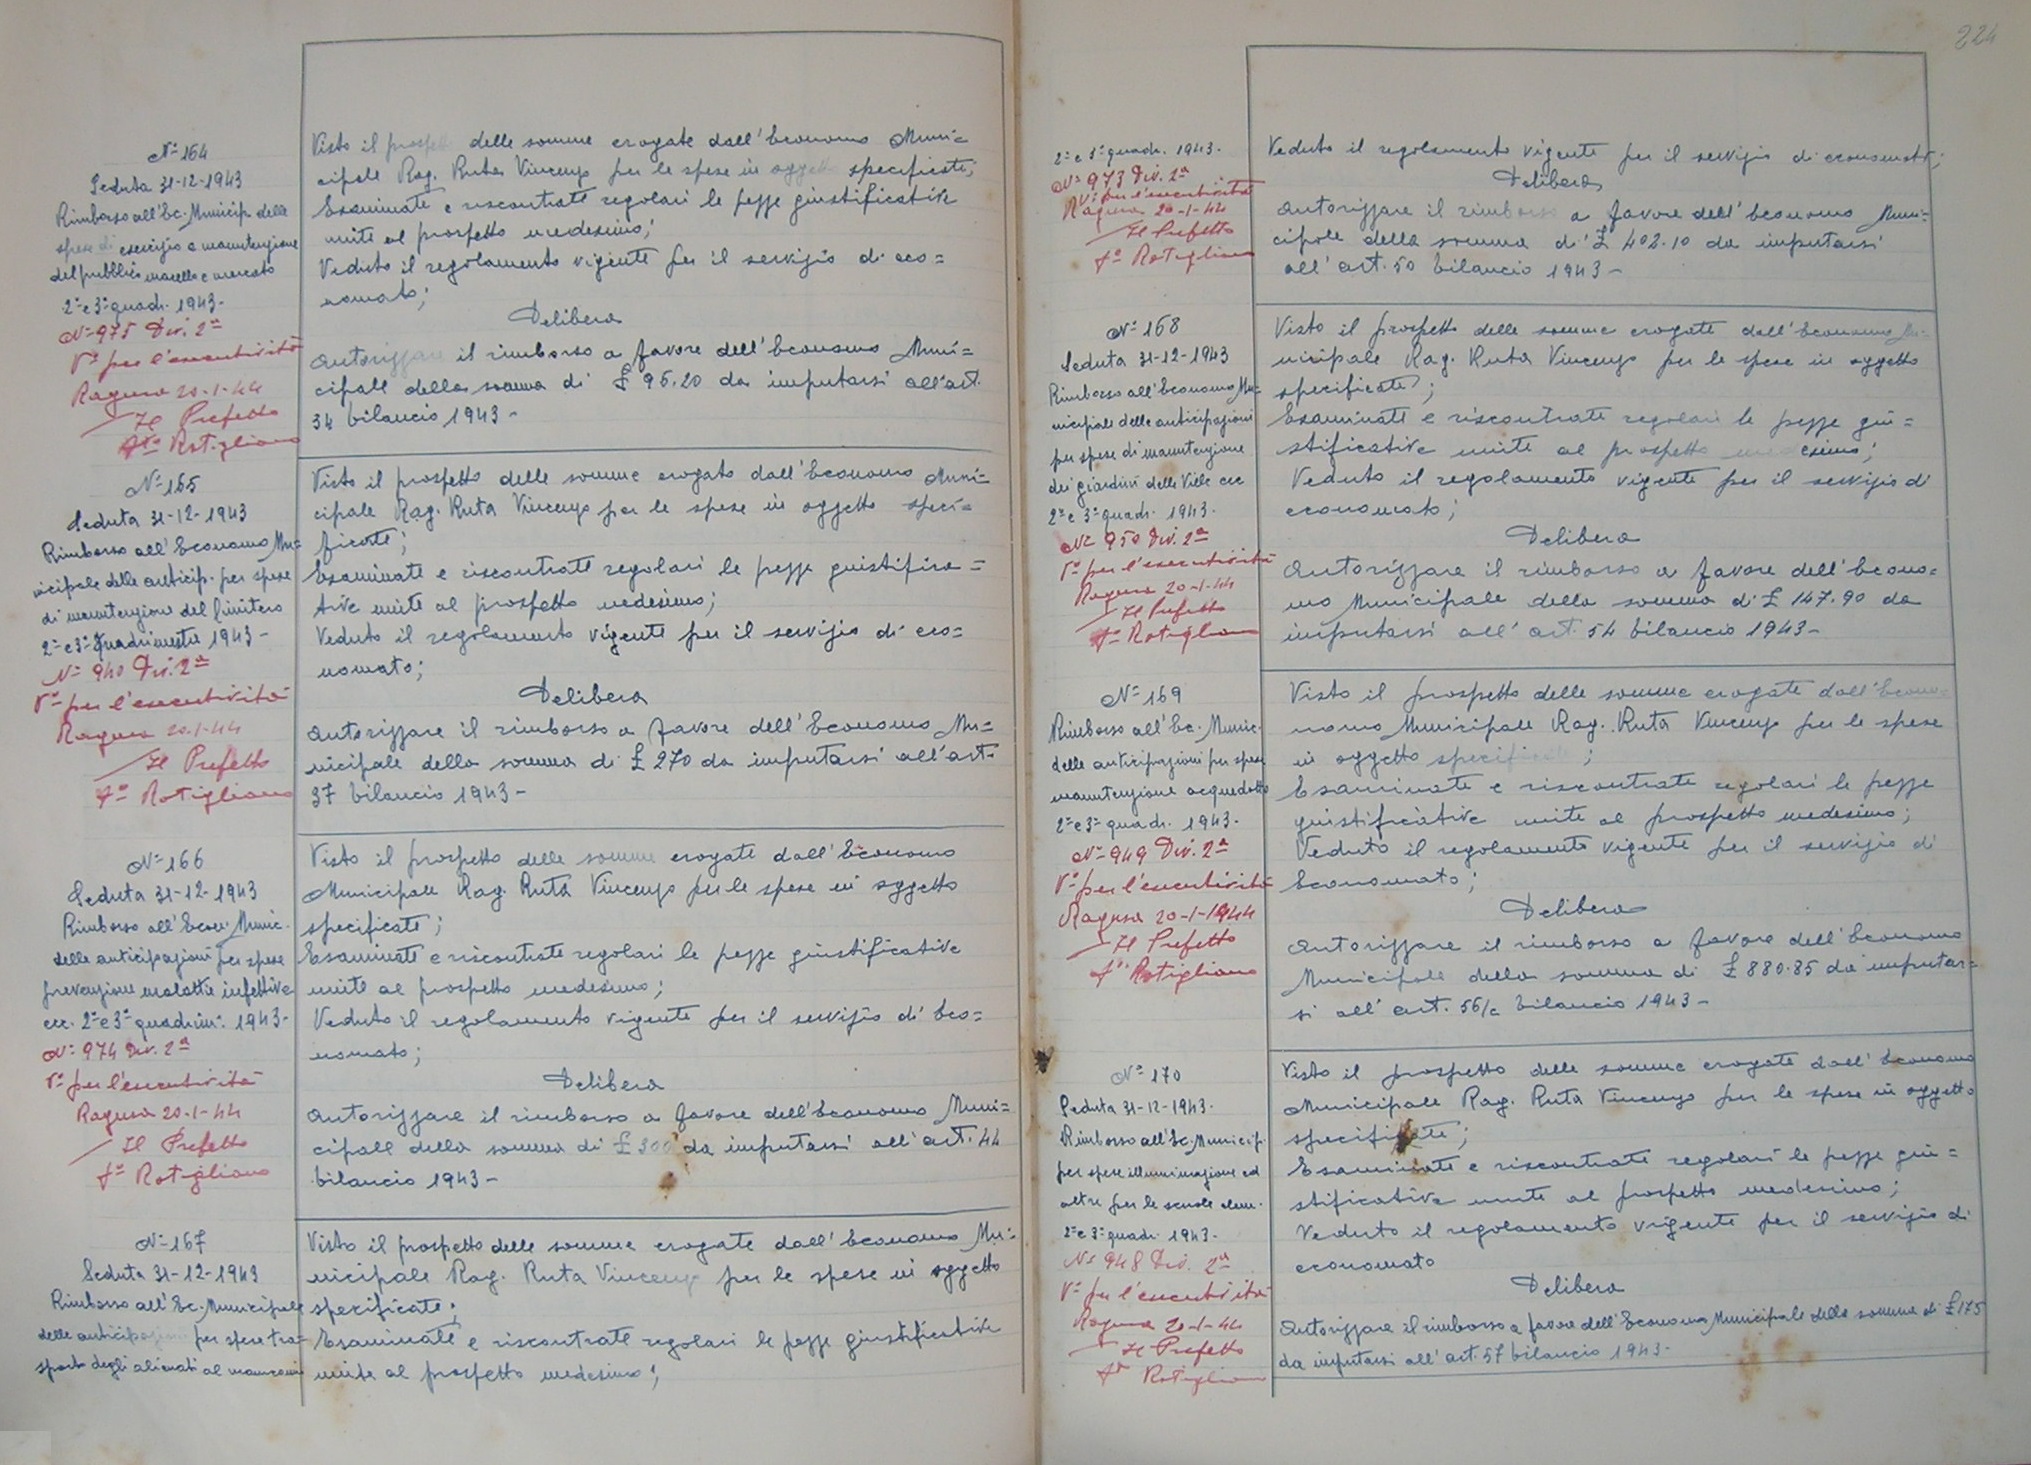 N° 164
Seduta 31-12-1943
Rimborso all'Ec. Municip. delle
spese di esercizio e manutenzione
del pubblico macello e mercato
2° e 3° quadr. 1943-
N° 975 Div. 2ª
V° per l'esecutività
Ragusa 20-1-44
Il Prefetto
Fto Rotigliano
Visto il prospetto delle somme erogate dall'Economo Muni=
cipale Rag. Ruta Vincenzo per le spese in oggetto specificate;
Esaminate e riscontrate regolari le pezze giustificative
unite al prospetto medesimo;
Veduto il regolamento vigente per il servizio di eco=
nomato;
Delibera
Autorizzare il rimborso a favore dell'Economo Muni=
cipale della somma di £ 95.20 da imputarsi all'art.
34 bilancio 1943-
N° 165
Seduta 31-12-1943
Rimborso all'Economo Mu=
nicipale delle anticip. per spese
di manutenzione del Cimitero
2° e 3° quadrimestre 1943-
N° 940 Div. 2ª
V° per l'esecutività
Ragusa 20-1-44
Il Prefetto
F° Rotigliano
Visto il prospetto delle somme erogato dall'Economo Muni=
cipale Rag. Ruta Vincenzo per le spese in oggetto speci=
ficate;
Esaminate e riscontrate regolari le pezze giustifica=
tive unite al prospetto medesimo;
Veduto il regolamento vigente per il servizio di eco=
nomato;
Delibera
Autorizzare il rimborso a favore dell'Economo Mu=
nicipale della somma di £ 270 da imputarsi all'art.
37 bilancio 1943-
N° 166
Seduta 31-12-1943
Rimborso all'Econ. Munic.
delle anticipazioni per spese
prevenzione malattie infettive
ecc. 2° e 3° quadrim. 1943-
N° 974 Div. 2ª
V° per l'esecutività
Ragusa 20-1-44
Il Prefetto
F° Rotigliano
Visto il prospetto delle somme erogate dall'Economo
Municipale Rag. Ruta Vincenzo per le spese in oggetto
specificate;
Esaminate e riscontrate regolari le pezze giustificative
unite al prospetto medesimo;
Veduto il regolamento vigente per il servizio di Eco=
nomato;
Delibera
Autorizzare il rimborso a favore dell'Economo Muni=
cipale della somma di £ 300 da imputarsi all'art. 44
bilancio 1943-
N° 167
Seduta 31-12-1943
Rimborso all'Ec. Municipale
delle anticipazioni per spese tra=
sporto degli alienati al manicomio
Visto il prospetto delle somme erogate dall'Economo Mu=
nicipale Rag. Ruta Vincenzo per le spese in oggetto
specificate;
Esaminate e riscontrate regolari le pezze giustificative
unite al prospetto medesimo;
224
2° e 3° quadr. 1943-
N° 973 Div. 2ª
V° per l'esecutività
Ragusa 20-1-44
Il Prefetto
F° Rotigliano
Veduto il regolamento vigente per il servizio di economato;
Delibera
Autorizzare il rimborso a favore dell'Economo Muni=
cipale della somma di £ 402.10 da imputarsi
all'art. 50 bilancio 1943-
N° 168
Seduta 31-12-1943
Rimborso all'Economo Mu=
nicipale delle anticipazioni
per spese di manutenzione
dei giardini delle Ville ecc
2° e 3° quadr. 1943-
N° 950 Div. 2ª
V° per l'esecutività
Ragusa 20-1-44
Il Prefetto
F° Rotigliano
Visto il prospetto delle somme erogate dall'Economo Mu=
nicipale Rag. Ruta Vincenzo per le spese in oggetto
specificate;
Esaminate e riscontrate regolari le pezze giu=
stificative unite al prospetto medesimo;
Veduto il regolamento vigente per il servizio di
economato;
Delibera
Autorizzare il rimborso a favore dell'Econo=
mo Municipale della somma di £ 147.90 da
imputarsi all'art. 54 bilancio 1943-
N° 169
Rimborso all'Ec. Munic.
delle anticipazioni per spese
manutenzione acquedotto
2° e 3° quadr. 1943-
N° 949 Div. 2ª
V° per l'esecutività
Ragusa 20-1-1944
Il Prefetto
F° Rotigliano
Visto il prospetto delle somme erogate dall'Econo=
nomo Municipale Rag. Ruta Vincenzo per le spese
in oggetto specificate;
Esaminate e riscontrate regolari le pezze
giustificative unite al prospetto medesimo;
Veduto il regolamento vigente per il servizio di
Economato;
Delibera
Autorizzare il rimborso a favore dell'Economo
Municipale della somma di £ 880.85 da imputar=
si all'art. 56/c bilancio 1943-
N° 170
Seduta 31-12-1943-
Rimborso all'Ec. Municip.
per spese illuminazione ed
altre per le scuole elem.
2° e 3° quadr. 1943-
N° 948 Div. 2ª
V° per l'esecutività
Ragusa 20-1-44
Il Prefetto
F° Rotigliano
Visto il prospetto delle somme erogate dall'Economo
Municipale Rag. Ruta Vincenzo per le spese in oggetto
specificate;
Esaminate e riscontrate regolari le pezze giu=
stificative unite al prospetto medesimo;
Veduto il regolamento vigente per il servizio di
economato
Delibera
Autorizzare il rimborso a favore dell'Economo Municipale della somma di £ 175
da imputarsi all'art. 57 bilancio 1943-